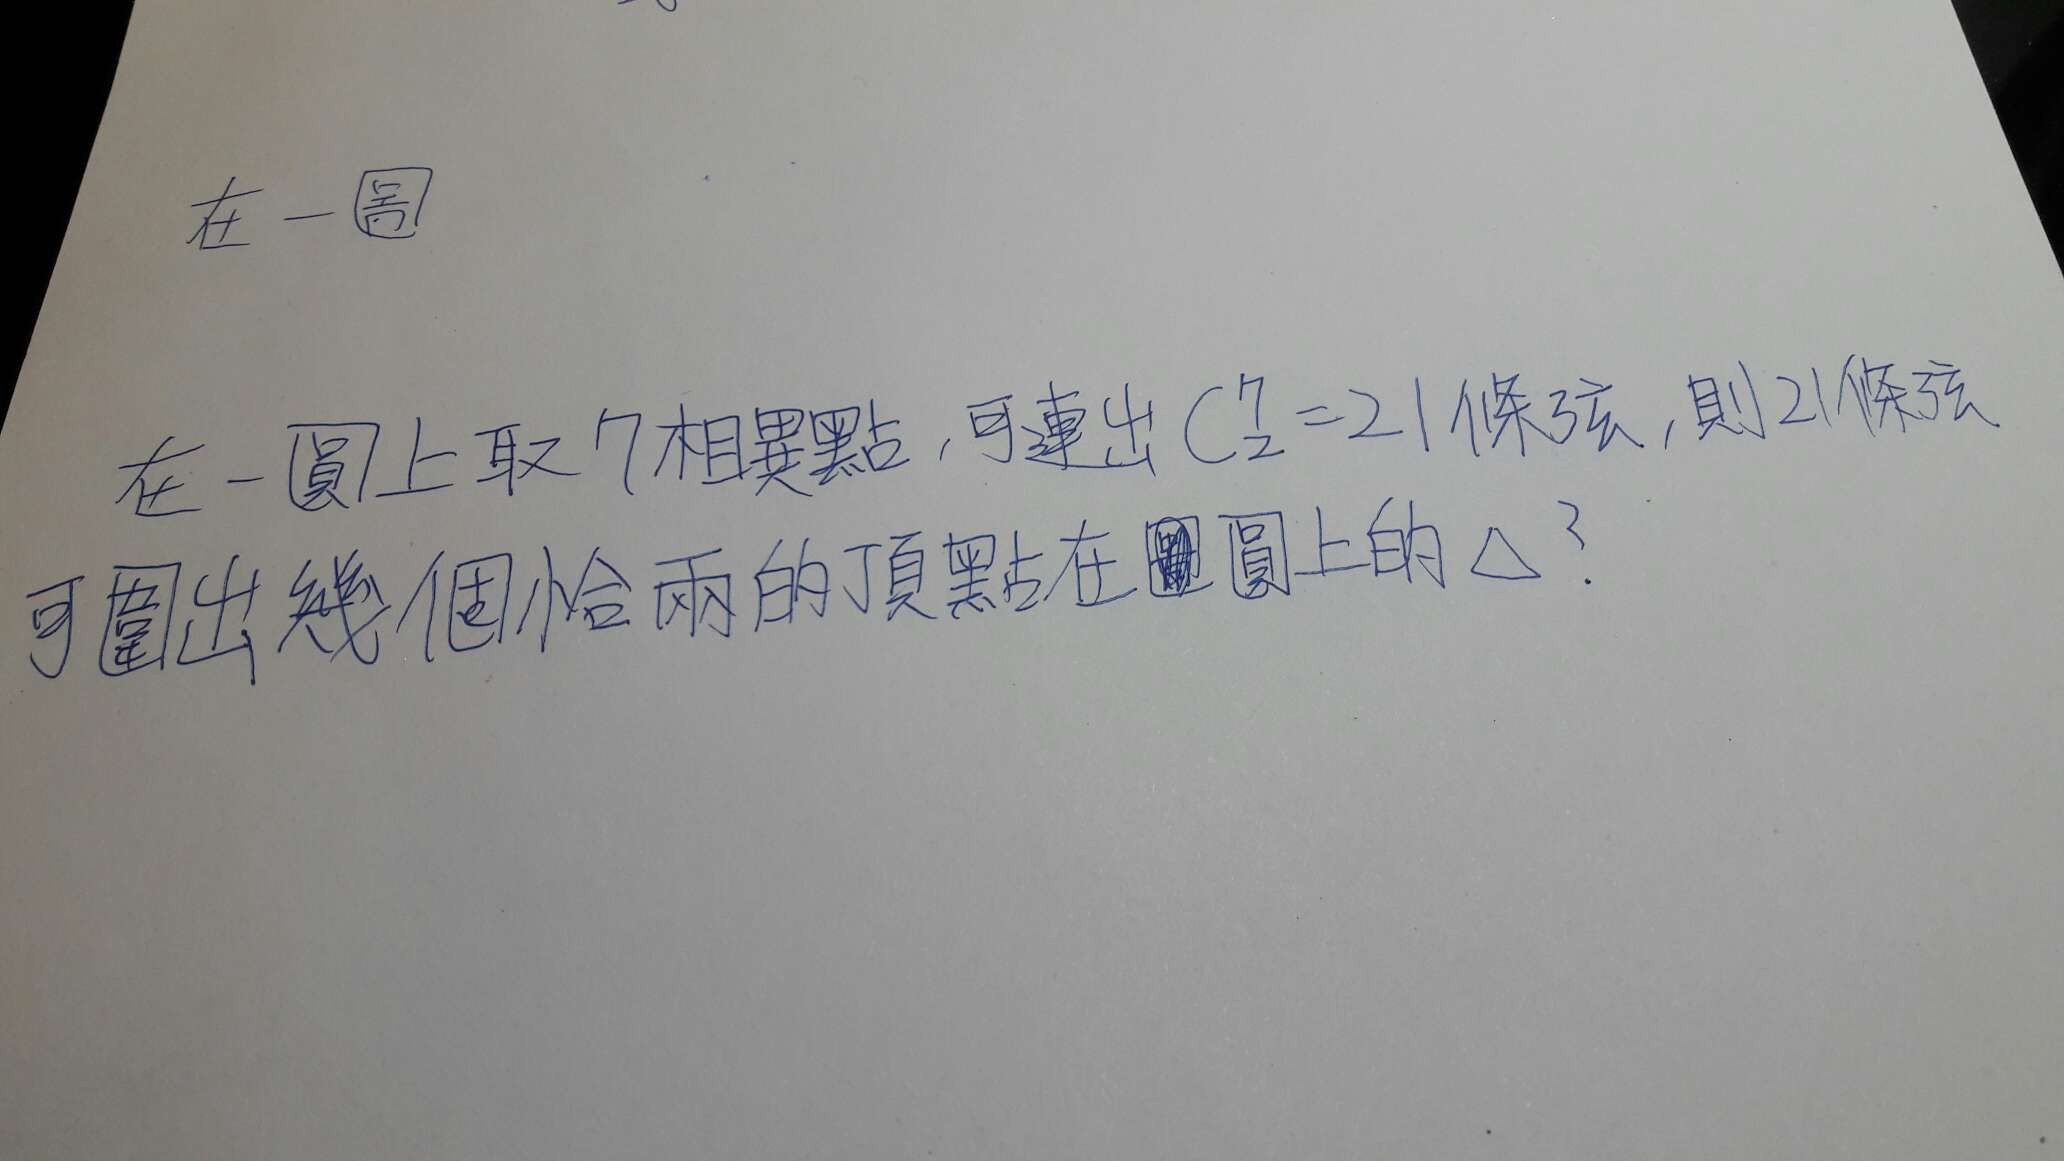 在一圖
在一圓上取7相異點,可連出C⁷₂=21條弦,則21條弦
可圍出幾個恰兩的頂點在圓上的△?